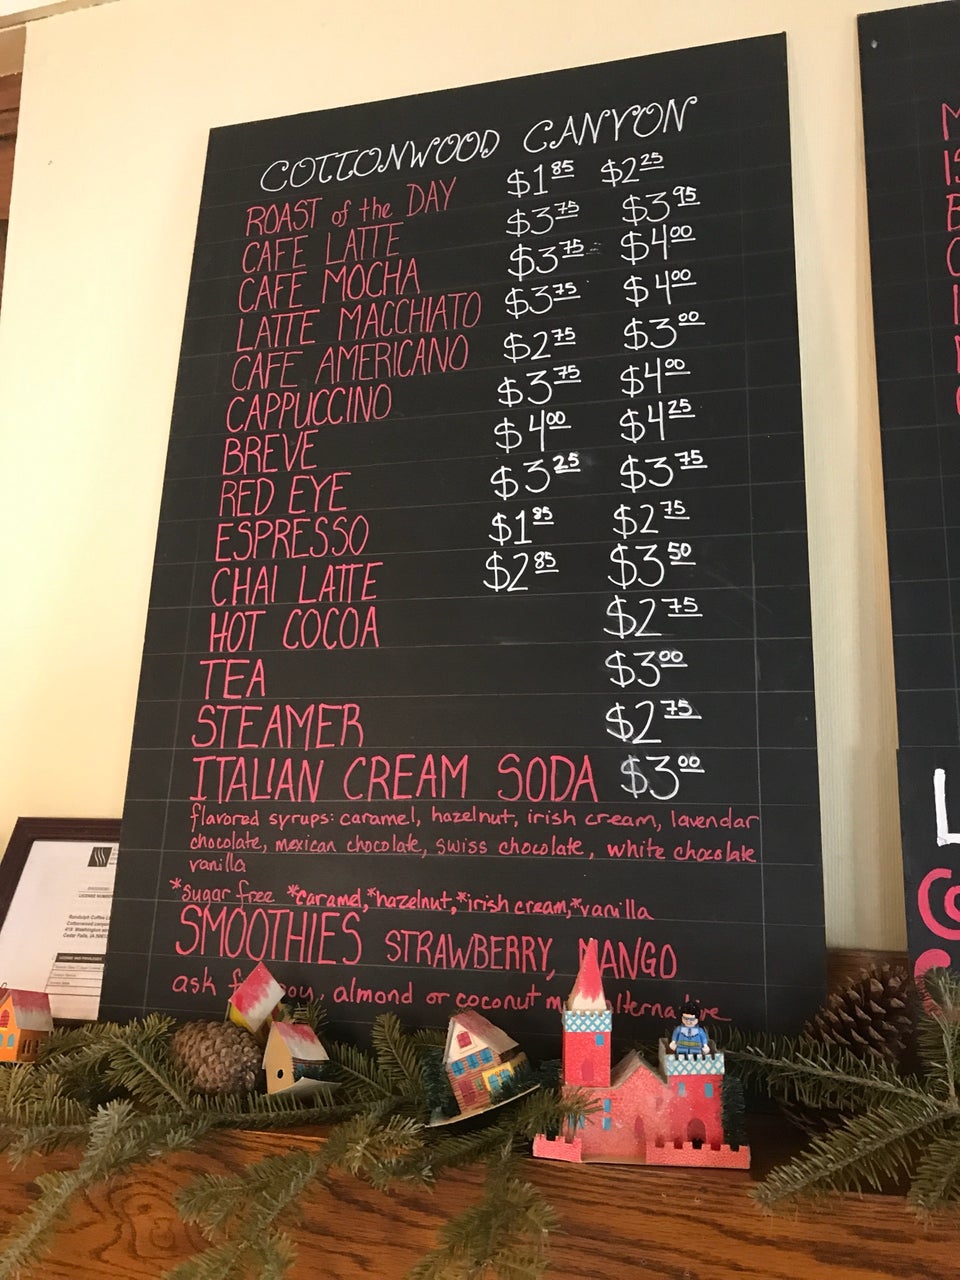 COTTONWOOD CANYON
ROAST of the DAY $1 85 $2 25
CAFE LATTE $3 75 $3 95
CAFE MOCHA $3 75 $4 00
LATTE MACCHIATO $3 75 $4 00
CAFE AMERICANO $2 75 $3 00
CAPPUCCINO $3 75 $4 00
BREVE $4 00 $4 25
RED EYE $3 25 $3 75
ESPRESSO $1 85 $2 75
CHAI LATTE $2 85 $3 50
HOT COCOA $2 75
TEA $3 00
STEAMER $2 75
ITALIAN CREAM SODA $3 00
flavored syrups: caramel, hazelnut, irish cream, lavendar
chocolate, mexican chocolate, swiss chocolate, white chocolate
vanilla
*sugar free *caramel, *hazelnut, *irish cream, *vanilla
SMOOTHIES STRAWBERRY, MANGO
ask soy, almond or coconut alternative